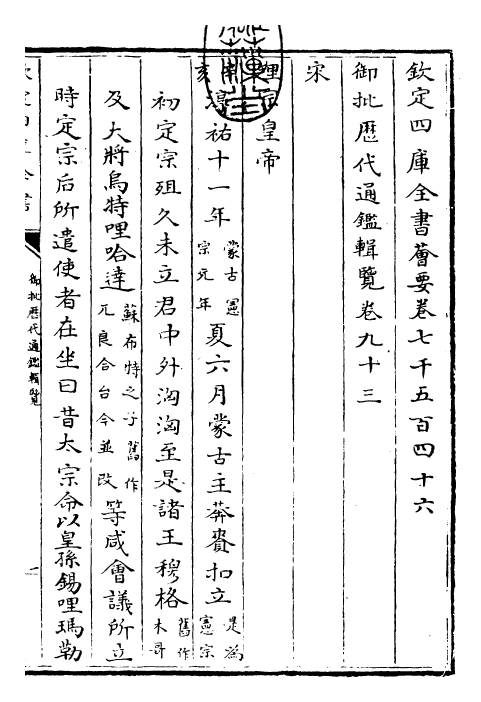 欽定四庫全書薈要卷七千五百四十六
御批歷代通鑑輯覽卷九十三
宋
理宗皇帝
亥淳祐十一年蒙古憲宗元年夏六月蒙古主莽賚扣立是為憲宗
初定宗殂久未立君中外洶洶至是諸王穆格舊作木哥
及大將烏特哩哈達蘇布特之子舊作兀良合台今並改等咸會議所立
時定宗后所遣使者在坐曰昔太宗命以皇孫錫哩瑪勒
御批歷代通鑑輯覽
一